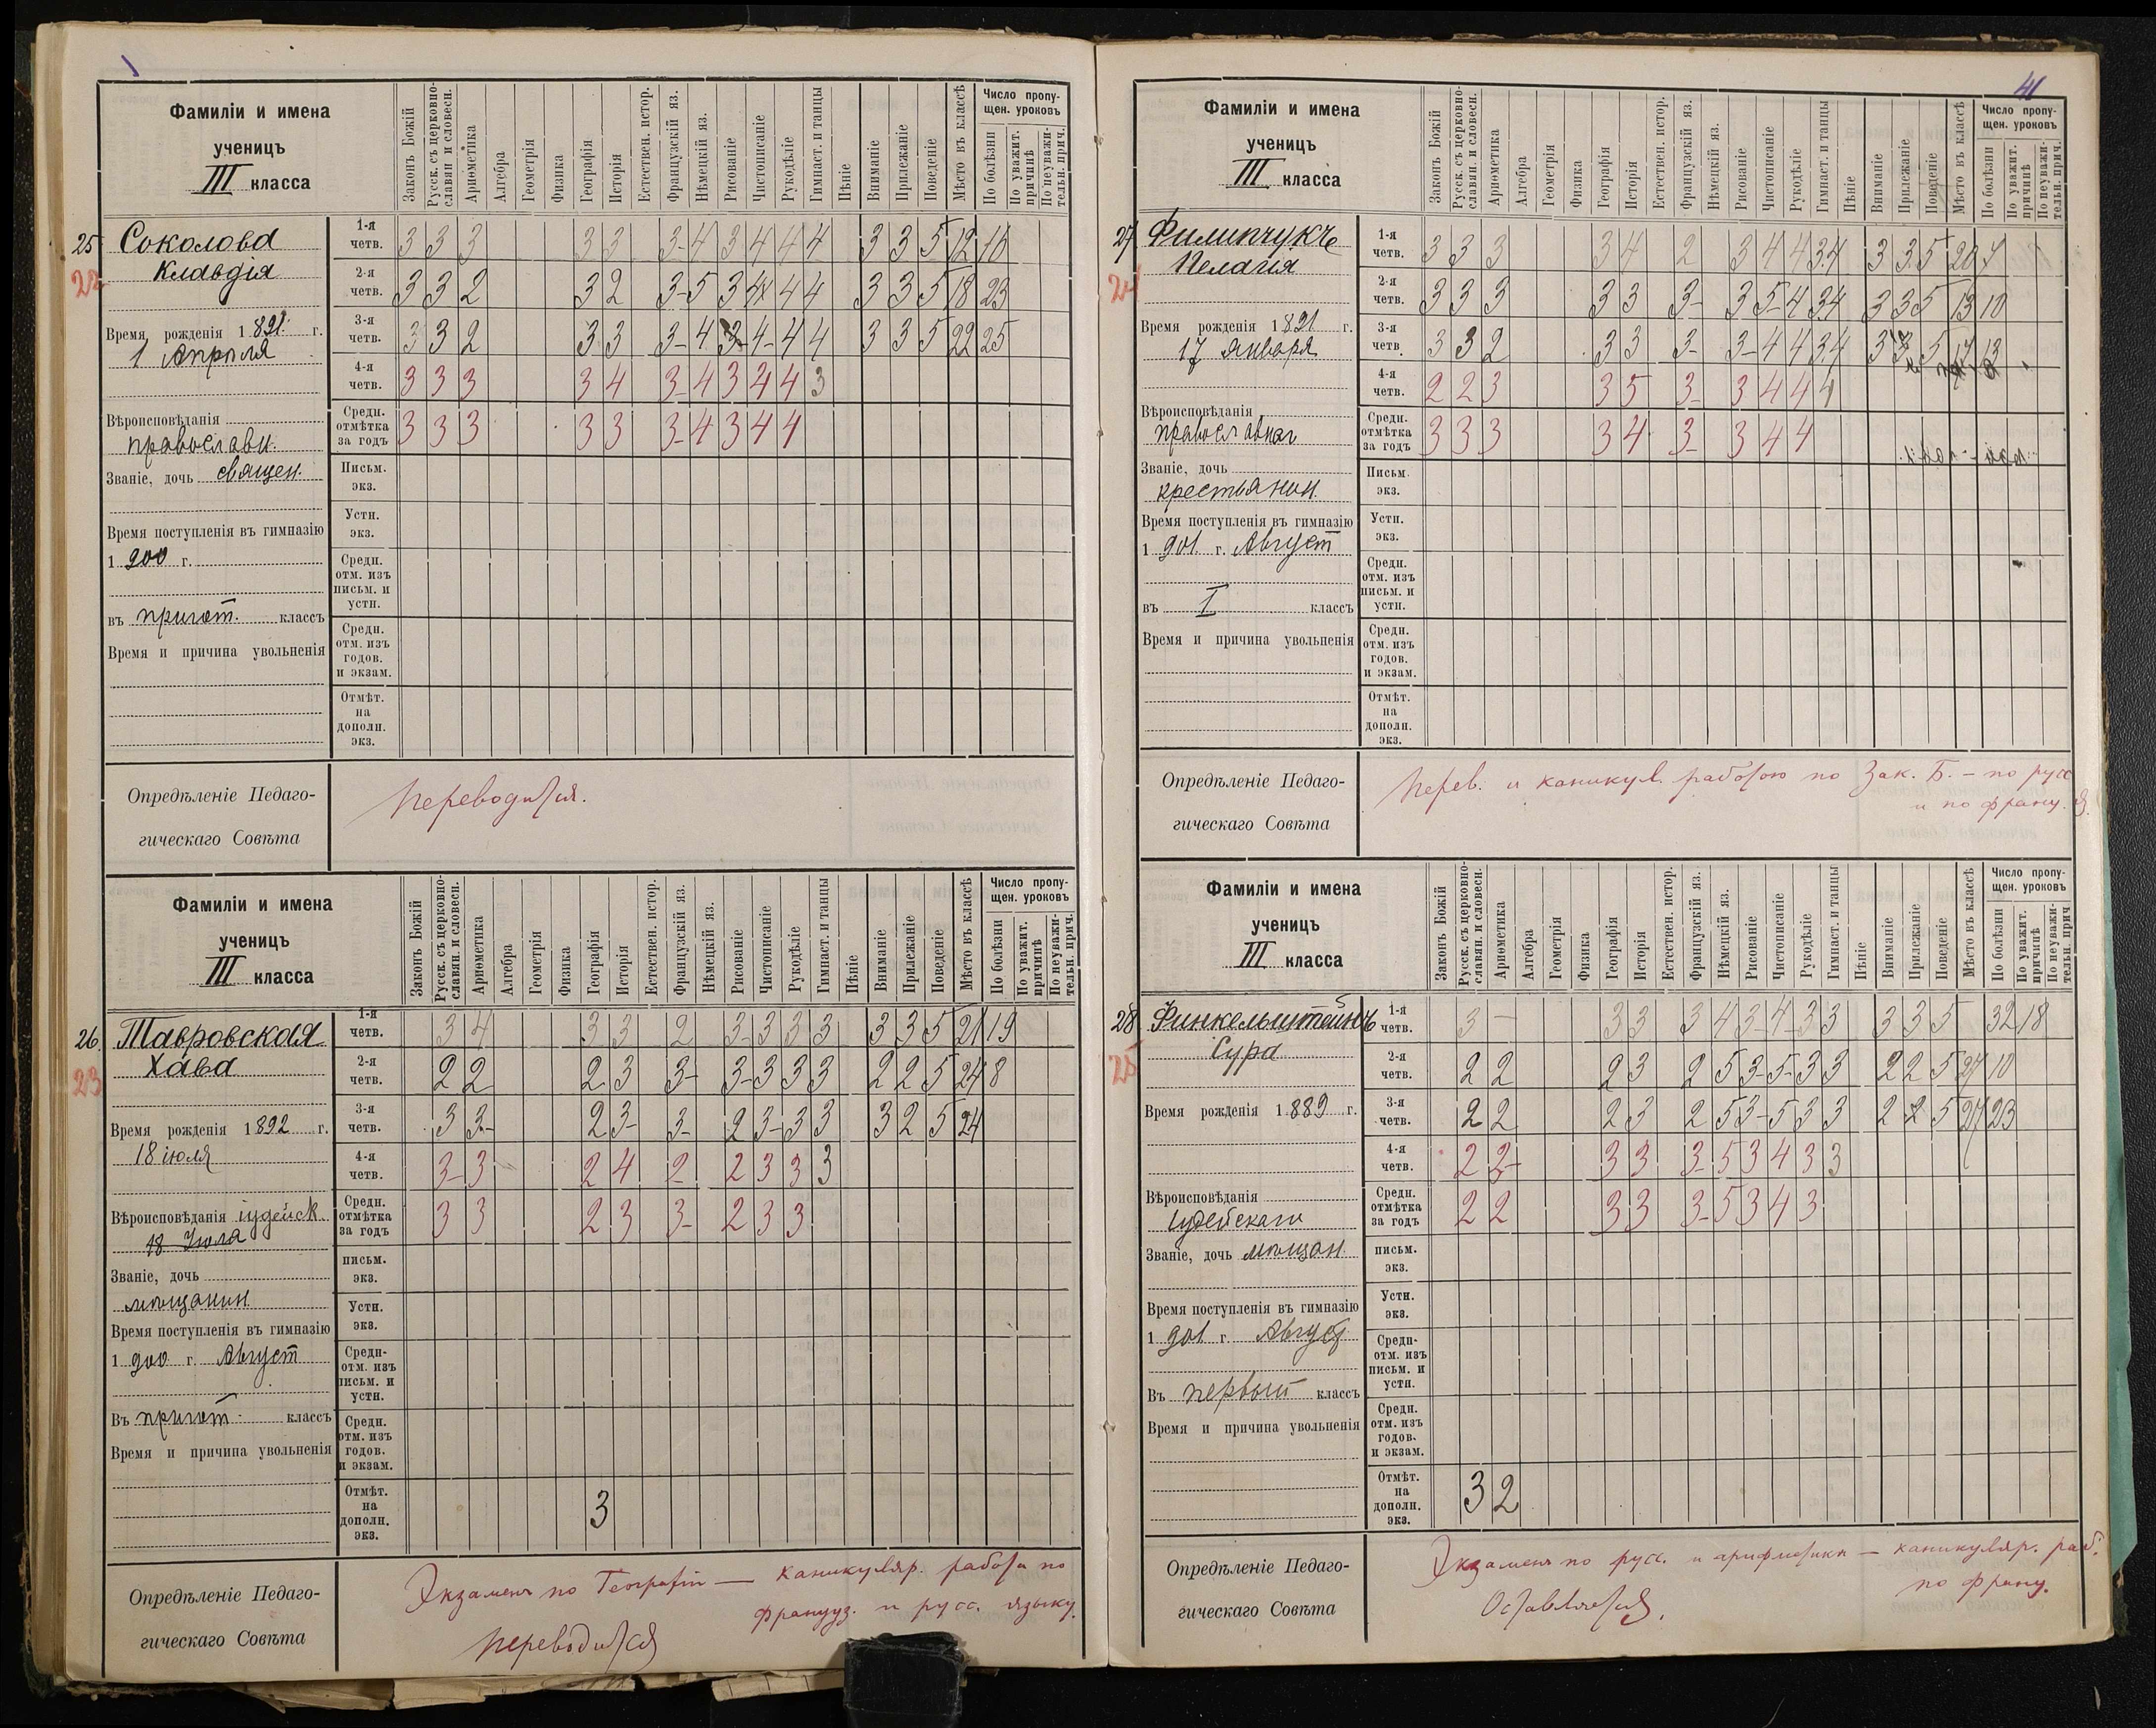 Фамиліи и имена
ученицъ
III класса
Законъ Божій
Русск. съ церковно-славян. и словесн.
Ариѳметика
Алгебра
Геометрія
Физика
Географія
Исторія
Естествен. истор.
Французскій яз.
Нѣмецкій яз.
Рисованіе
Чистописаніе
Рукодѣліе
Гимнаст. и танцы
Пѣніе
Вниманіе
Прилежаніе
Поведеніе
Мѣсто въ классѣ
Число пропущен. уроковъ
По болѣзни
По уважит. причинѣ
По неуважительн. прич.
25 Соколова
22 Клавдія
Время рожденія 1891 г.
1 Апрѣля
Вѣроисповѣданія
православн.
Званіе, дочь священ.
Время поступленія въ гимназію
1900 г.
въ пригот. классъ
Время и причина увольненія
1-я четв. 3 3 3 3 3 3- 4 3 4 4 4 3 3 5 12 16
2-я четв. 3 3 2 3 2 3- 5 3 4 4 4 3 3 5 18 23
3-я четв. 3 3 2 3 3 3- 4 3- 4- 4 4 3 3 5 22 25
4-я четв. 3 3 3 3 4 3- 4 3 4 4 3
Средн. отмѣтка за годъ 3 3 3 3 3 3- 4 3 4 4
Письм. экз.
Устн. экз.
Средн. отм. изъ письм. и устн.
Средн. отм. изъ годов. и экзам.
Отмѣт. на дополн. экз.
Опредѣленіе Педаго-
гическаго Совѣта
Переводится.
Фамиліи и имена
ученицъ
III класса
Законъ Божій
Русск. съ церковно-славян. и словесн.
Ариѳметика
Алгебра
Геометрія
Физика
Географія
Исторія
Естествен. истор.
Французскій яз.
Нѣмецкій яз.
Рисованіе
Чистописаніе
Рукодѣліе
Гимнаст. и танцы
Пѣніе
Вниманіе
Прилежаніе
Поведеніе
Мѣсто въ классѣ
Число пропущен. уроковъ
По болѣзни
По уважит. причинѣ
По неуважительн. прич.
26. Тавровская
23 Хава
Время рожденія 1892 г.
18 іюля
Вѣроисповѣданія іудейск
18 Іюля
Званіе, дочь
мѣщанин.
Время поступленія въ гимназію
1900 г. Август
Въ пригот. классъ
Время и причина увольненія
1-я четв. 3 4 3 3 2 3- 3 3 3 3 3 5 21 19
2-я четв. 2 2 2 3 3- 3- 3 3 3 2 2 5 24 8
3-я четв. 3 3- 2 3- 3- 2 3- 3 3 3 2 5 24
4-я четв. 3- 3 2 4 2 2 3 3 3
Средн. отмѣтка за годъ 3 3 2 3 3- 2 3 3
письм. экз.
Устн. экз.
Средн- отм. изъ письм. и устн.
Средн. отм. изъ годов. и экзам.
Отмѣт. на дополн. экз. 3
Опредѣленіе Педаго-
гическаго Совѣта
Экзаменъ по Географіи — каникуляр. работа по
француз. и русс. языку.
Переводится
41
Фамиліи и имена
ученицъ
III класса
Законъ Божій
Русск. съ церковно-славян. и словесн.
Ариѳметика
Алгебра
Геометрія
Физика
Географія
Исторія
Естествен. истор.
Французскій яз.
Нѣмецкій яз.
Рисованіе
Чистописаніе
Рукодѣліе
Гимнаст. и танцы
Пѣніе
Вниманіе
Прилежаніе
Поведеніе
Мѣсто въ классѣ
Число пропущен. уроковъ
По болѣзни
По уважит. причинѣ
По неуважительн. прич.
27 Филипчукъ
24 Пелагія
Время рожденія 1891 г.
17 Января
Вѣроисповѣданія
православная
Званіе, дочь
крестьянин.
Время поступленія въ гимназію
1901 г. Август
въ I классъ
Время и причина увольненія
1-я четв. 3 3 3 3 4 2 3 4 4 3.4 3 3 5 20 7
2-я четв. 3 3 3 3 3 3- 3 5- 4 3.4 3 3 5 13 10
3-я четв. 3 3 2 3 3 3- 3- 4 4 3.4 3 3 5 17 13
4-я четв. 2 2 3 3 5 3- 3 4 4 4
Средн. отмѣтка за годъ 3 3 3 3 4 3- 3 4 4
Письм. экз.
Устн. экз.
Средн. отм. изъ письм. и устн.
Средн. отм. изъ годов. и экзам.
Отмѣт. на дополн. экз.
Опредѣленіе Педаго-
гическаго Совѣта
Перев. и каникул. работою по Зак. Б. — по русс
и по франц. я.
Фамиліи и имена
ученицъ
III класса
Законъ Божій
Русск. съ церковно-славян. и словесн.
Ариѳметика
Алгебра
Геометрія
Физика
Географія
Исторія
Естествен. истор.
Французскій яз.
Нѣмецкій яз.
Рисованіе
Чистописаніе
Рукодѣліе
Гимнаст. и танцы
Пѣніе
Вниманіе
Прилежаніе
Поведеніе
Мѣсто въ классѣ
Число пропущен. уроковъ
По болѣзни
По уважит. причинѣ
По неуважительн. прич
28 Финкельштейнъ
25 Сура
Время рожденія 1889 г.
Вѣроисповѣданія
іудейскаго
Званіе, дочь мѣщан.
Время поступленія въ гимназію
1901 г. Август
Въ первый классъ
Время и причина увольненія
1-я четв. 3 — 3 3 3 4 3- 4- 3 3 3 3 5 32 18
2-я четв. 2 2 2 3 2 5 3- 5- 3 3 2 2 5 27 10
3-я четв. 2 2 2 3 2 5 3- 5 3 3 2 2 5 27 23
4-я четв. 2 2- 3 3 3- 5 3 4 3 3
Средн. отмѣтка за годъ 2 2 3 3 3- 5 3 4 3
письм. экз.
Устн. экз.
Средн- отм. изъ письм. и устн.
Средн. отм. изъ годов. и экзам.
Отмѣт. на дополн. экз. 3 2
Опредѣленіе Педаго-
гическаго Совѣта
Экзаменъ по русс. и арифметики — каникуляр. раб.
по франц.
Оставляется.